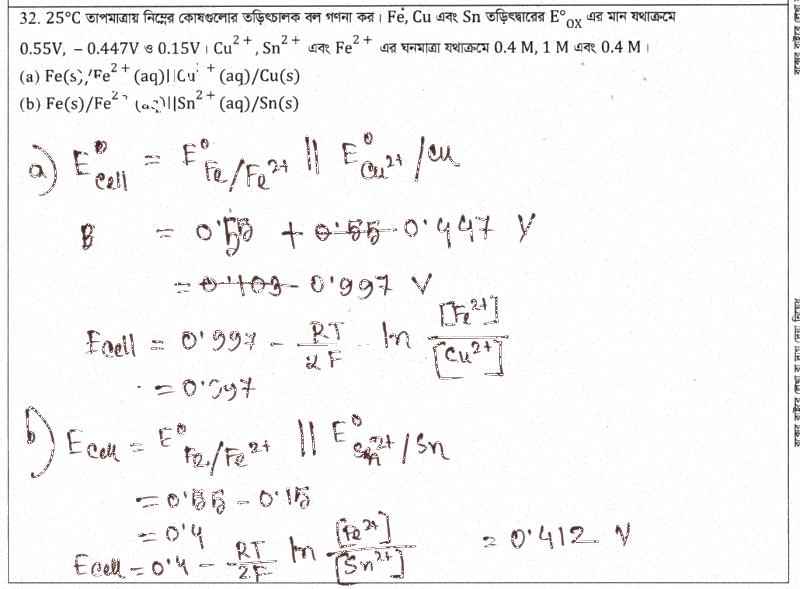 32. 25°C তাপমাত্রায় নিম্নের কোষগুলোর তড়িৎচালক বল গণনা কর। Fe, Cu এবং Sn তড়িৎদ্বারের E°ₒₓ এর মান যথাক্রমে
0.55V, − 0.447V ও 0.15V। Cu²⁺, Sn²⁺ এবং Fe²⁺ এর ঘনমাত্রা যথাক্রমে 0.4 M, 1 M এবং 0.4 M।
(a) Fe(s)/Fe²⁺(aq)||Cu²⁺(aq)/Cu(s)
(b) Fe(s)/Fe²⁺(aq)||Sn²⁺(aq)/Sn(s)
a) E°cell = E°Fe/Fe²⁺ || E°Cu²⁺/Cu
= 0.55 + 0.447 V
= 0.997 V
Ecell = 0.997 − RT/2F ln [Fe²⁺]/[Cu²⁺]
= 0.997
b) Ecell = E°Fe/Fe²⁺ || E°Sn²⁺/Sn
= 0.55 − 0.15
= 0.4
Ecell = 0.4 − RT/2F ln [Fe²⁺]/[Sn²⁺] = 0.412 V